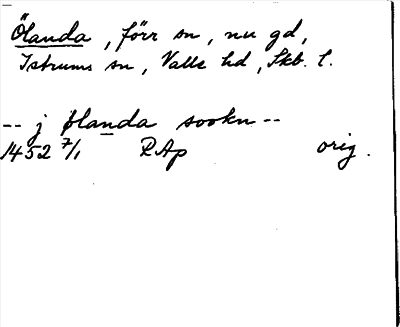 Ölanda, förr sn, nu gd,
Istrums sn, Valle hd, Skb. l.
-- j ølanda sookn --
1452 7/1 RAp orig.